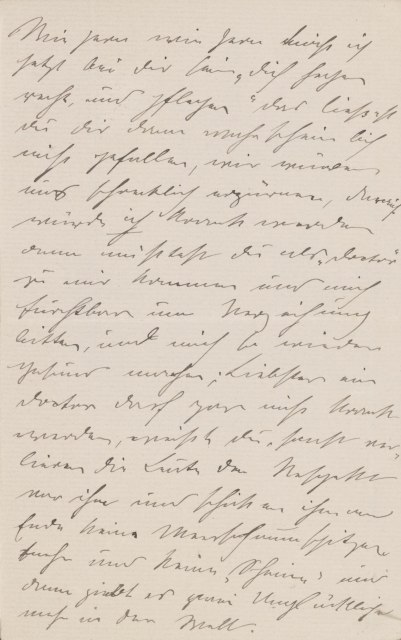 Wie gern wie gern möcht ich
jetzt bei dir sein, dich hegen
und pflegen "das ließest
du dir dann wahrscheinlich
nicht gefallen, wir würden
uns schrecklich erzürnen,
würde ich krank werden
dann müßtest du als "Doctor"
zu mir kommen und mich
furchtbar um Verzeihung
bitten, und mich wieder
gesund machen; Liebster ein
Doctor darf gar nicht krank
werden, weißt du, sonst ver-
lieren die Leute den Respekt
vor ihm und schicken ihm am
Ende keine Meerschaumspitzen
mehr und keine "Scheine" und
dann giebt es zwei Unglückliche
mehr in der Welt.